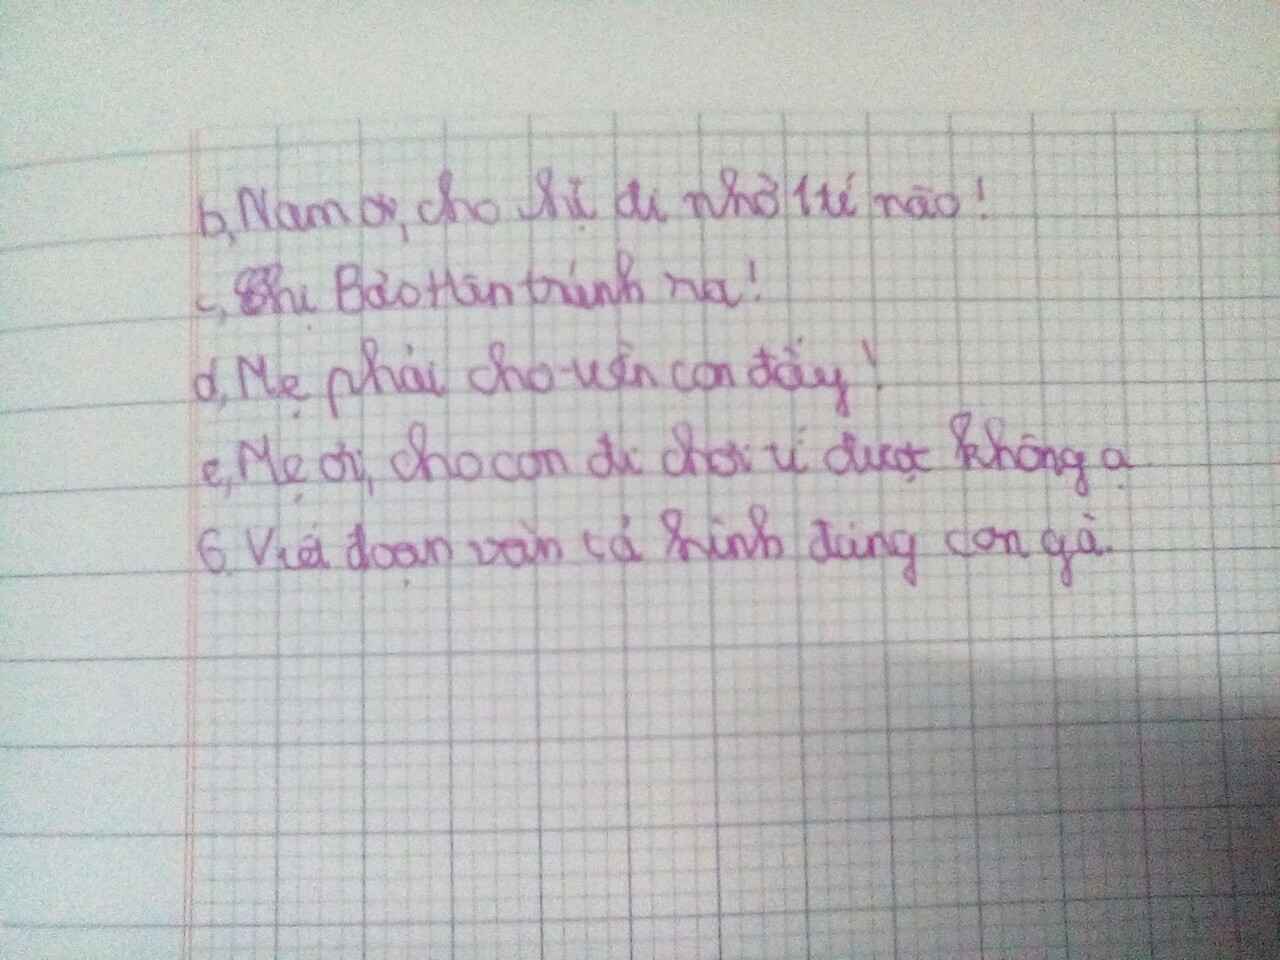 b, Nam ơi, cho chị đi nhờ 1 tí nào!
c, Chị Bảo Hân tránh ra!
d, Mẹ phải cho uấn con đấy!
e, Mẹ ơi, cho con đi chơi tí được không ạ
6. Viết đoạn văn tả hình dáng con gà.